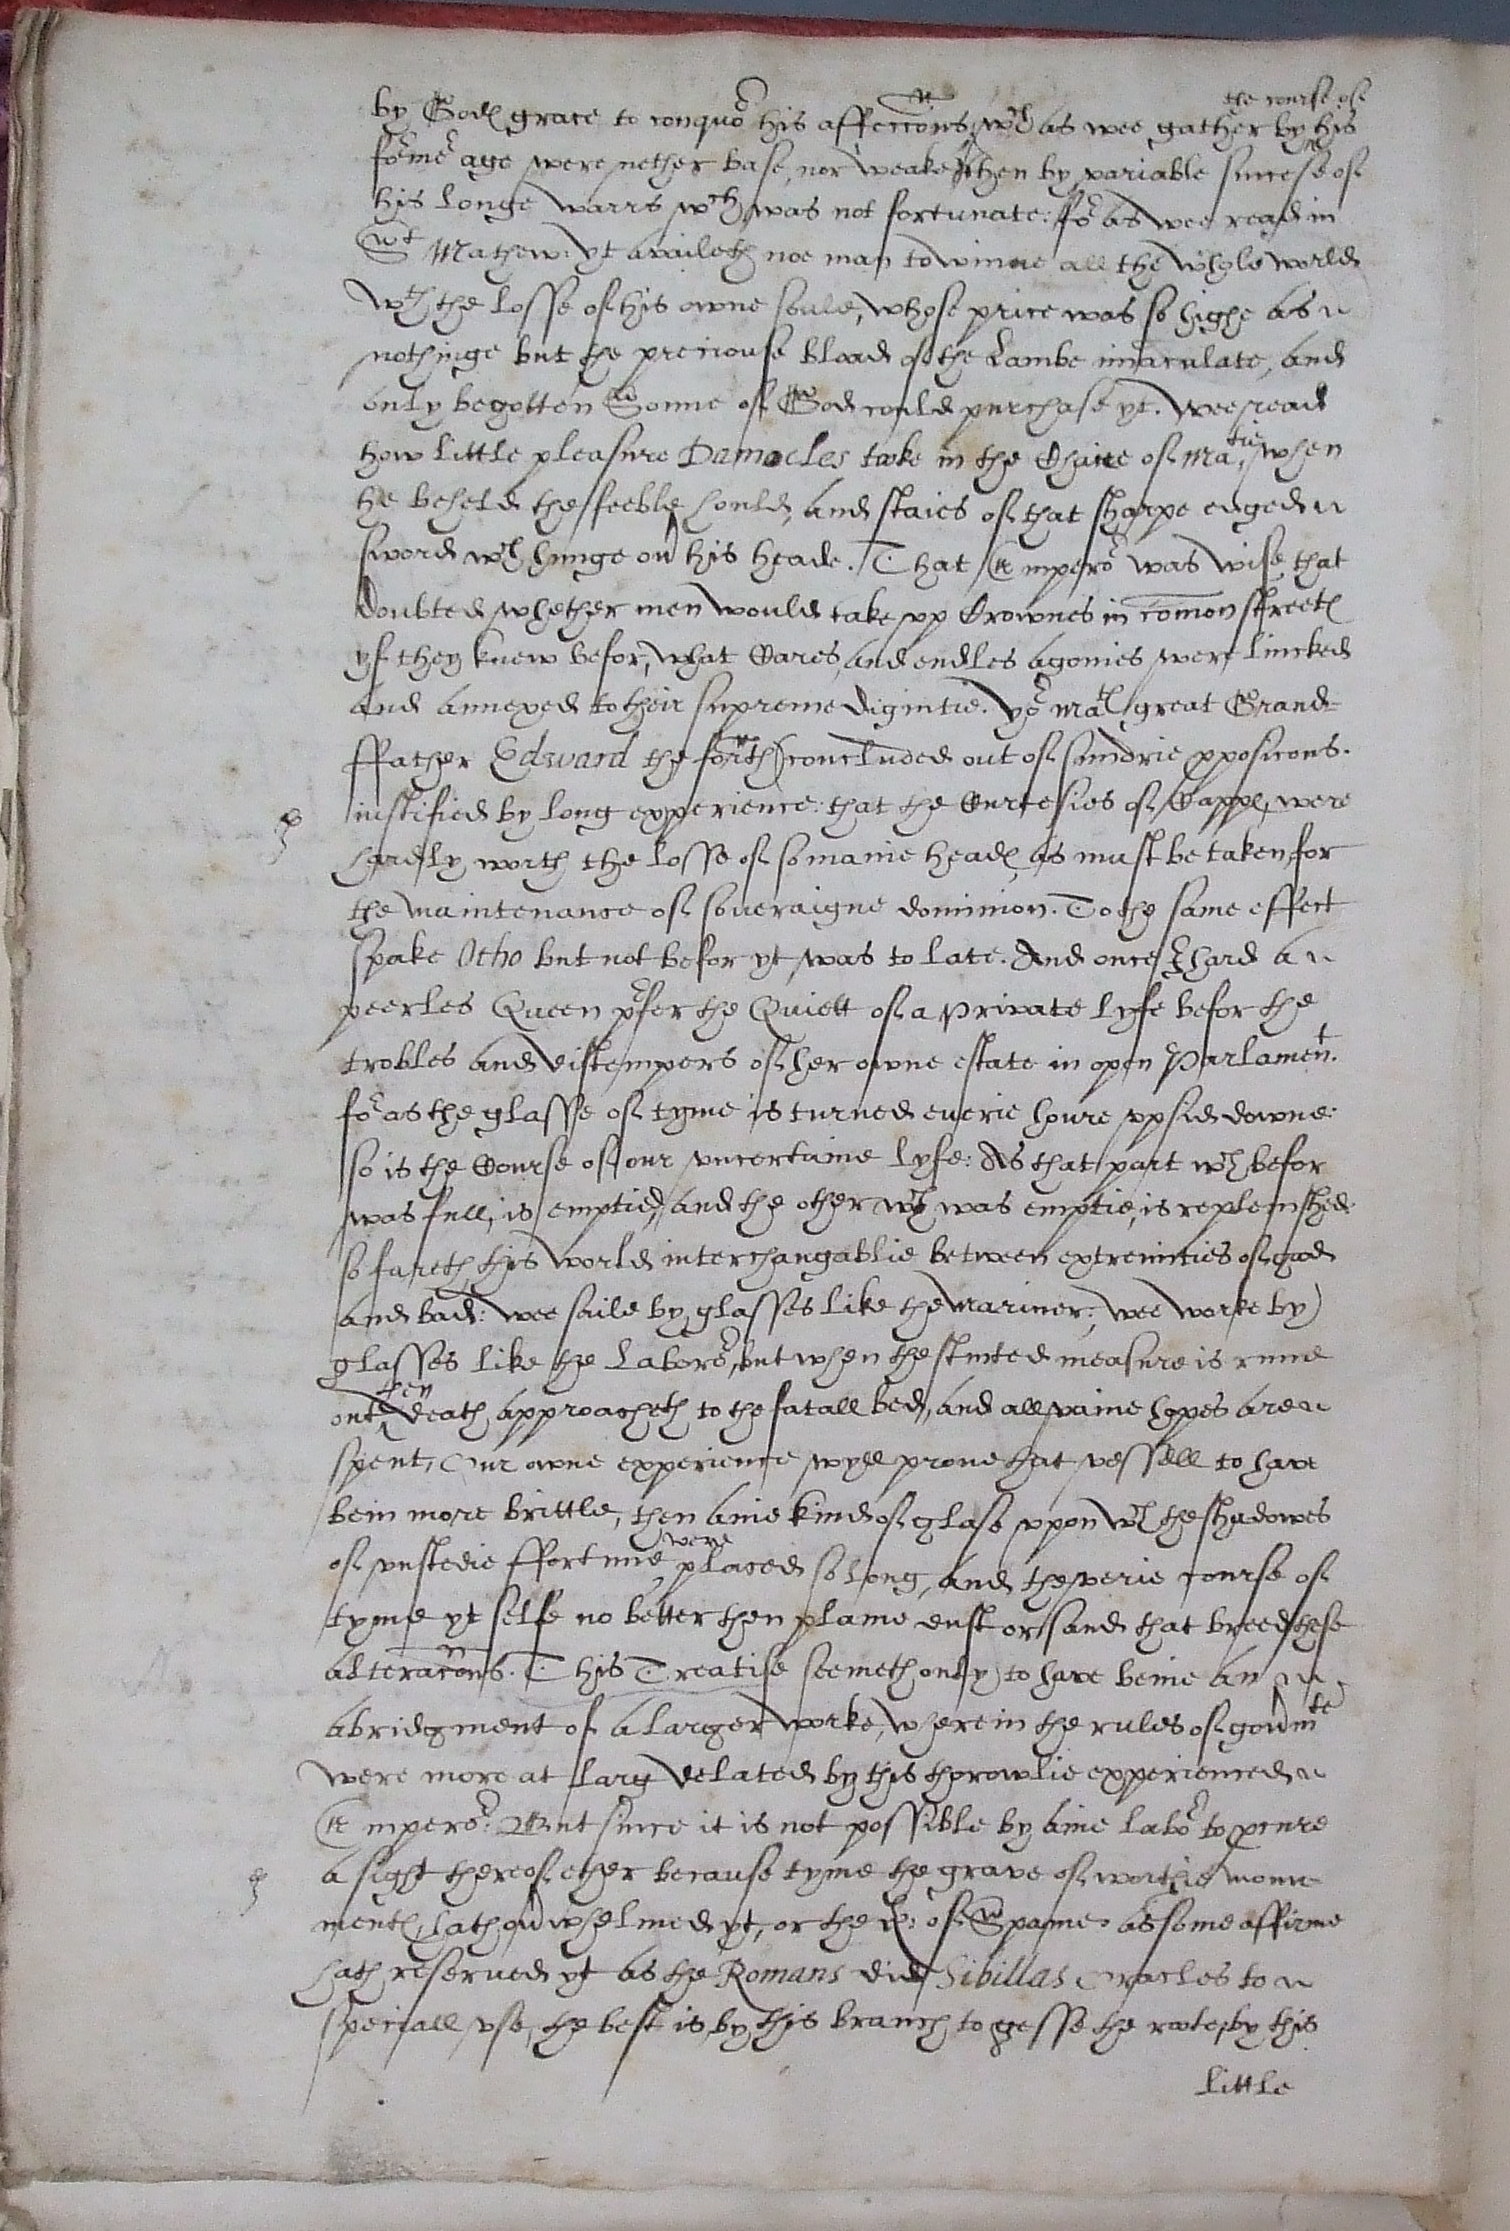 by Gods grace to conquor his affeccons, wch as wee gather by the course of his
former age were nether base, nor weake then by variable succese of
his longe warrs wch was not fortunate: for as wee read in
St Mathew: yt availeth noe man to winne all the whole world
wth the losse of his owne soule, whose price was so highe as
nothinge but the preciouse bloud of the Lambe imaculate, and
only begotten Sonne of God could purchase yt. Wee read
how little pleasure Damocles tooke in the Chaire of Matie, when
he beheld the feeble hould, and staies of that sharpe edged
sword wch hunge over his heade. That Emperor was wise that
doubted whether men would take vpp Crownes in comon streets
yf they knew befor, what Cares, and endles agonies were lincked
and annexed to their supreme dignitie. Yor Mats great Grand=
ffather Edward the fourth concluded out of sundrie pposicons
iustified by long experience: that the Curtesies of Capps, were
hardly worth the losse of so manie heads as must be taken, for
the maintenance of soueraigne dominion. To the same effect
spake Otho but not befor yt was to late. And once I hard a
peerles Queen pfer the Quiett of a private lyfe befor the
trobles and distempers of her owne estate in open Parlament.
for as the glasse of tyme is turned euerie houre vpsid downe:
so is the Course of our vncertaine lyfe: As that part wch befor
was full, is emptied, and the other wch was emptie, is replenished
so fareth this world interchangablie between extremities of good
and bad: wee saile by glasses like the Mariner; wee worke by
glasses like the Laboror, but when the stinted measure is runne
out, then death approacheth to the fatall bed, and all vaine hopes are
spent, Our owne experience wyll proue that vessell to have
bein more brittle, then anie kind of glase vppon wch the shadowes
of vnstedie ffortune were placed so long, and the verie course of
tyme yt selfe no better then plaine dust or sand that breed these
alteracons. This Treatise seemeth only to have beine an
abridgment of a larger worke, wherein the rules of governmte
were more at larg delated by this thorowlie experienced
Emperor: But since it is not possible by anie labor to pcure
a sight thereof ether because tyme the grave of worthie monu-
ments hath overwhelmed yt, or the K: of Spaine as some affirme
hath reserued yt as the Romans did Sibillas Oracles to
speciall vse, the best is by this branch to gesse the roote, by this
little